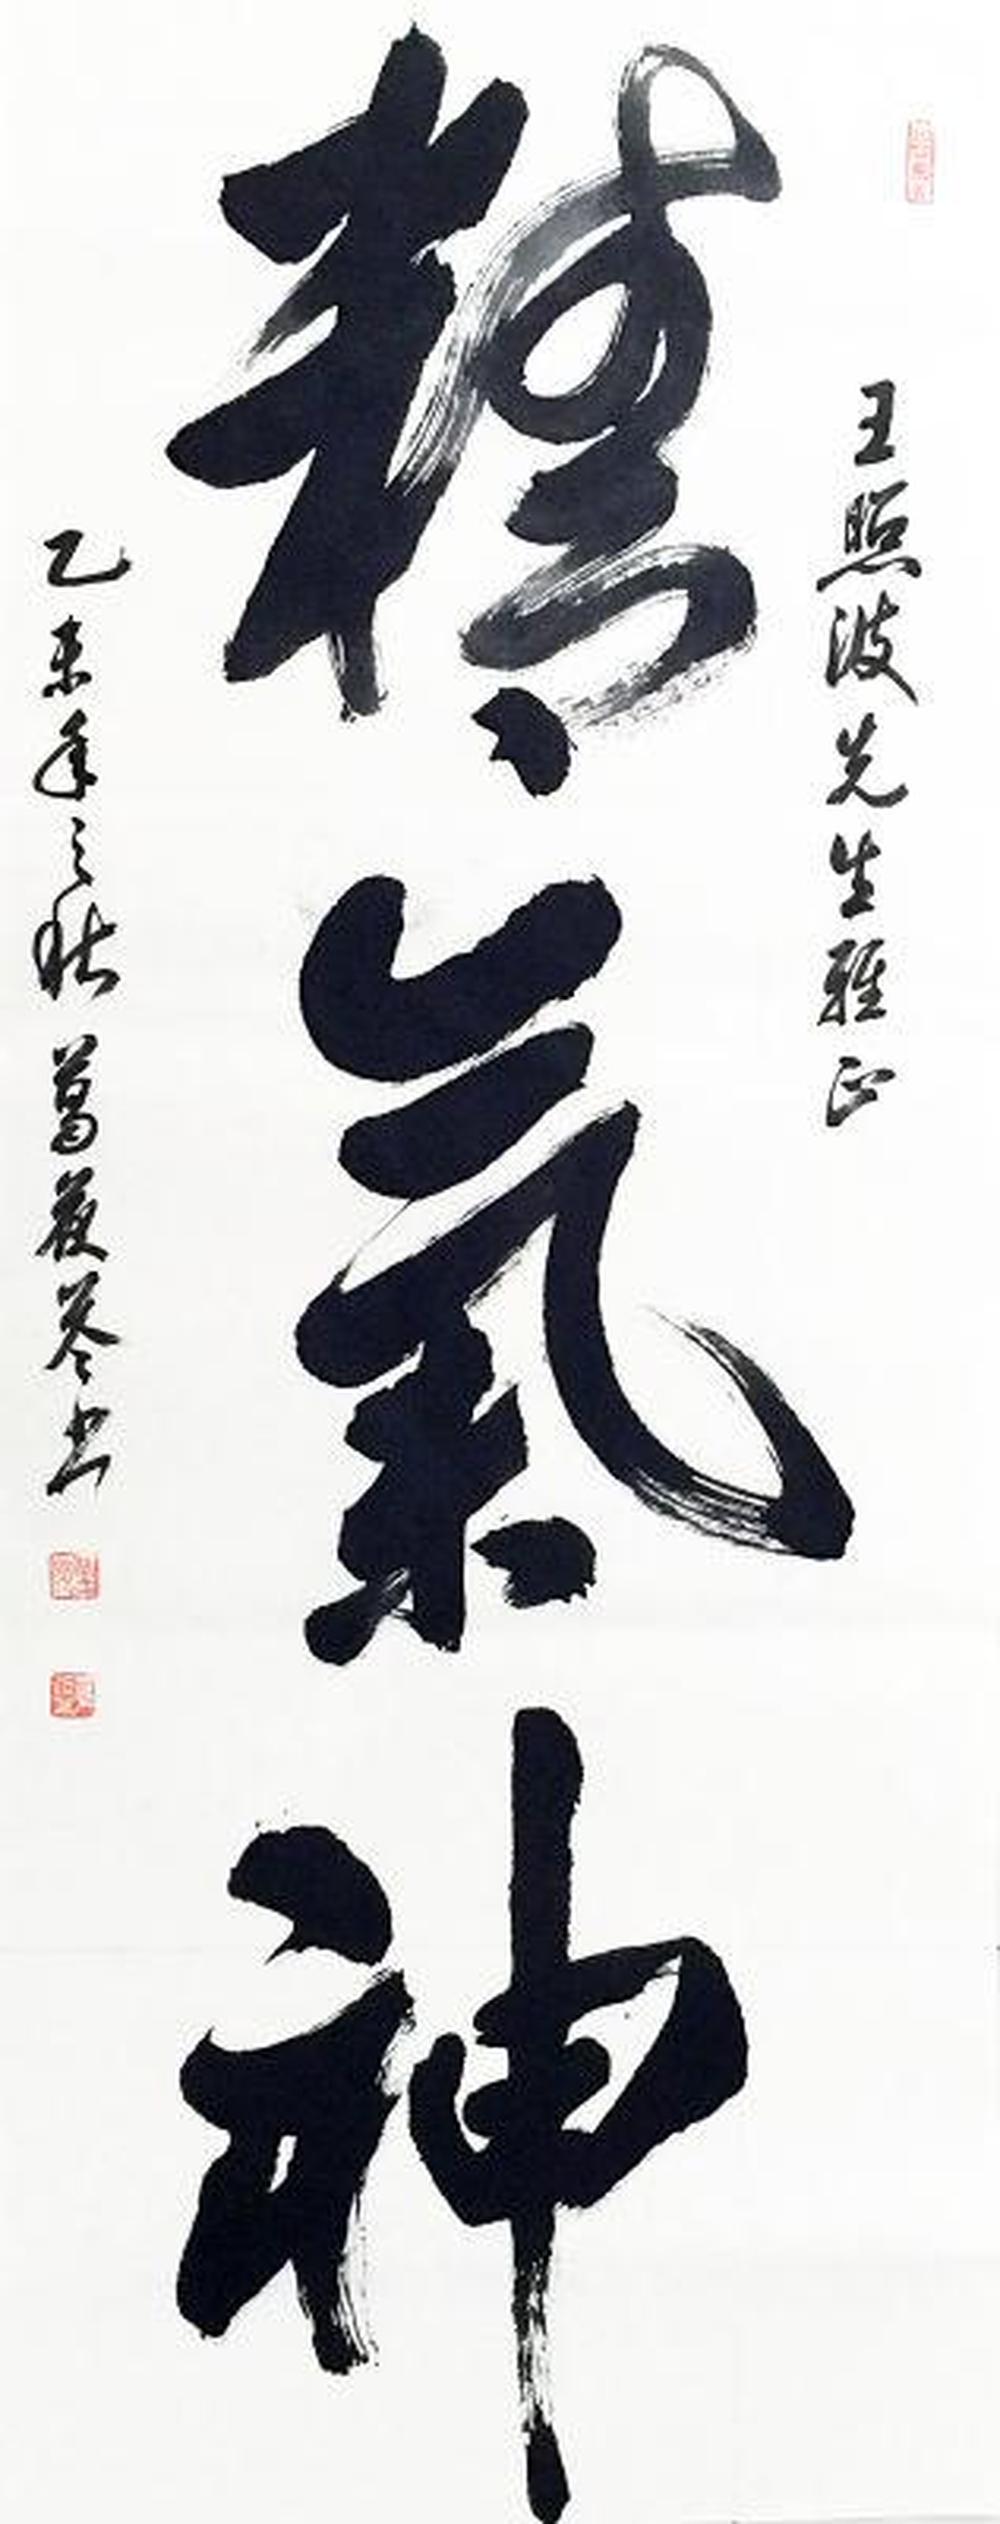 王照波先生雅正
精氣神
乙未年之秋 葛筱苓书